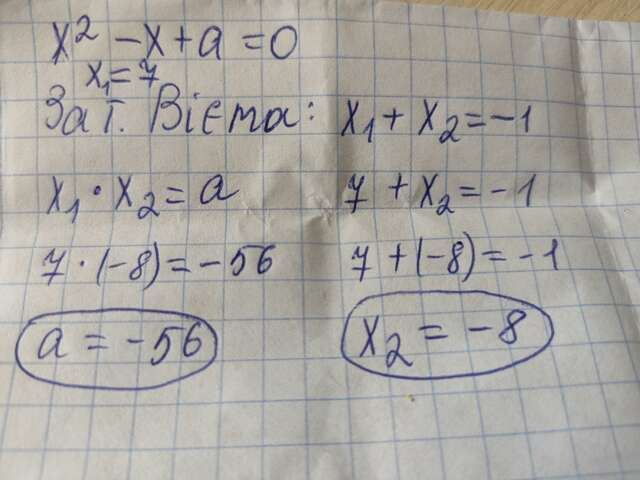 x² - x + a = 0
x₁ = 7
За т. Вієта: x₁ + x₂ = -1
x₁ · x₂ = a 7 + x₂ = -1
7 · (-8) = -56 7 + (-8) = -1
a = -56 x₂ = -8